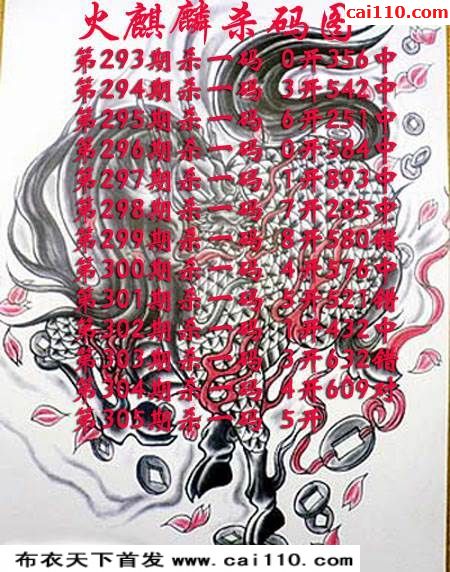 cai110.com
火麒麟杀码图
第293期杀一码 0开356中
第294期杀一码 3开542中
第295期杀一码 6开251中
第296期杀一码 0开584中
第297期杀一码 1开893中
第298期杀一码 7开285中
第299期杀一码 8开580错
第300期杀一码 4开576中
第301期杀一码 5开521错
第302期杀一码 1开432中
第303期杀一码 3开632错
第304期杀一码 4开609对
第305期杀一码 5开
布衣天下首发 www.cai110.com